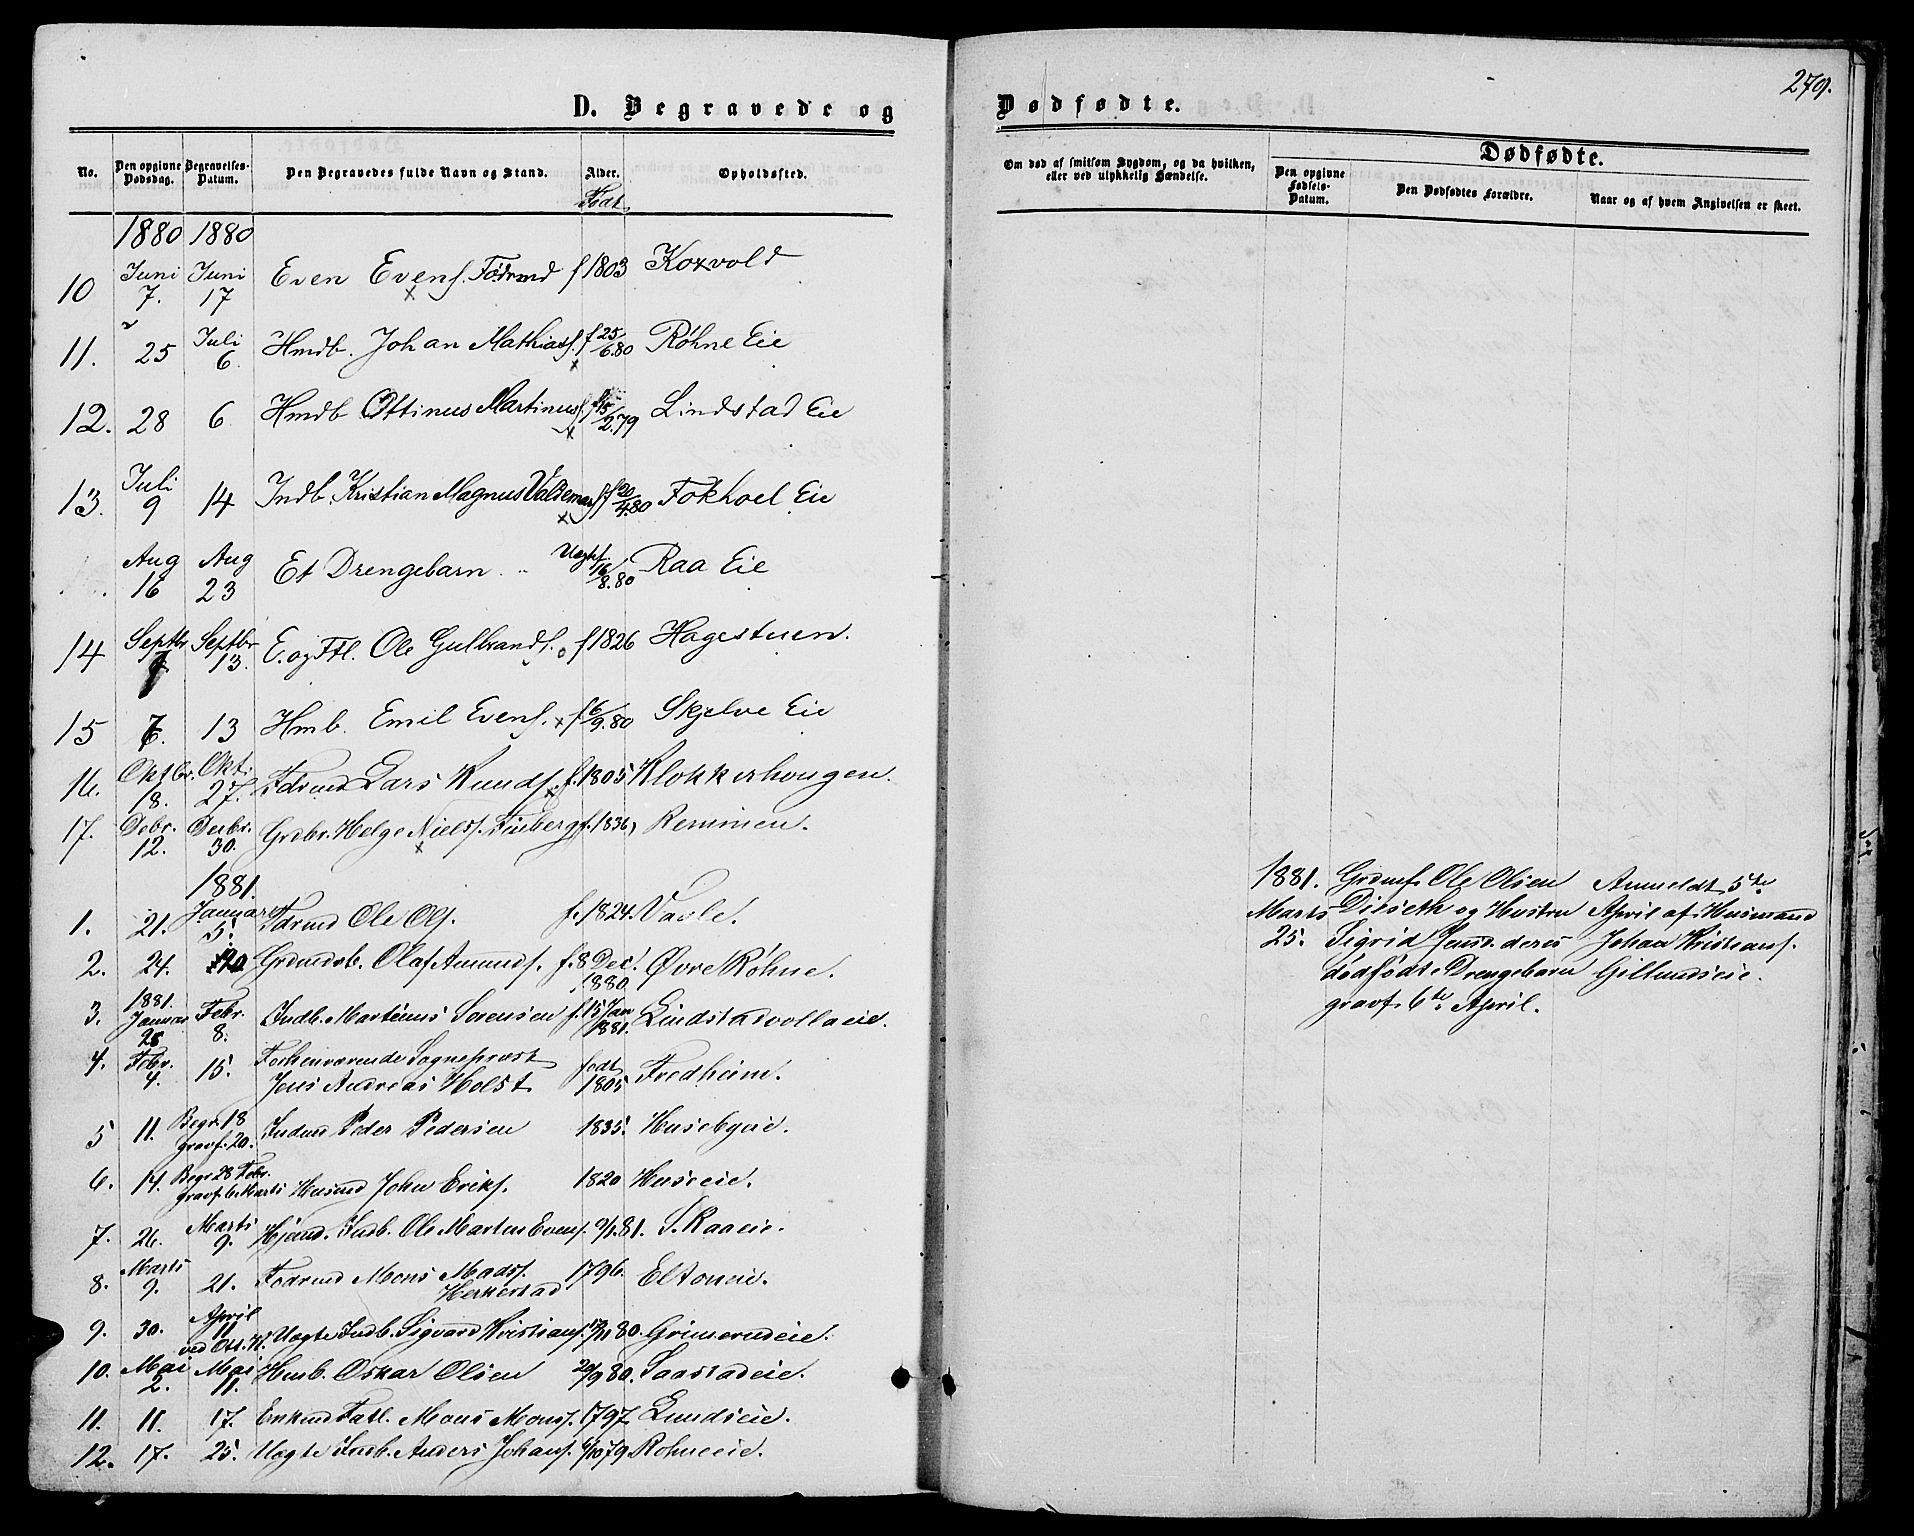 D. Begravede og
No. Den opgivne Dødsdag. Begravelses-Datum. Den Begravedes fulde Navn og Stand. Alder. Opholdssted.
Født
1880 1880
10 Juni 7. Juni 17 Even Evens. Fødrmd f 1803 Korvold
11. " 25 Juli 6. Hmdb. Johan Mathias s. f 25/6.80 Røhne Eie
12. 28 6 Hmdb Ottinus Martinus s. f 15/2.79 Lindstad Eie
13. Juli 9 14 Indb. Kristian Magnus Valdemar s. f 20/4.80 Fokhoel Eie
Aug 16 Aug 23 Et Drengebarn .. Uægt f. 16/8.80 Raa Eie
14 Septbr Septbr 13. E. og Ftl. Ole Gulbrands. f 1826 Hagestuen.
15 13 Hmb. Emil Evens. f 6/9.80 Skjelve Eie
16. Oktbr. 18. Okt. 27. Fdrmd Lars Knuds. f. 1805 Klokkerhougen.
17. Debr. 12. Decbr. 30. Grdbr. Helge Niels s. f. 1836, Remmen.
1881.
1. 21. Januar 5. Fdrmd Ole Ols. f. 1824. Vavle.
2. 24. Grdmdsb. Olaf Amunds. f. 8 Dec. 1880 Øvre Røhne.
3. 1881. Januar 28 Febr. 8. Indb. Martinus Sorensen f. 15 Jan 1881. Lindstadvollaeie.
4. Febr. 4. 15. Forhenværende Sogneprest
Jens Andreas Holst født 1805 Fredheim.
5 11. Begr. 18 gravf. 20. Indmd Peder Pedersen 1835. Husebyeie.
6. 14. Begr 28 Febr. gravf. 6. Marts Husmd John Eriks. 1820 Huseie.
7. 26. Marts 9. Indb. Ole Martin Evens. 9/1.81. S. Raaeie.
8. Marts 9. 21. Fodrmd Mons Mads s. Herkestad 1796. Eltoneie.
9. 30. April 11. ved Ott. K. Uægte Indb. Sigvard Kristians. 80. Grimerudeie.
10. Mai 2. Mai 11. Husb. Oskar Olsen 20/9 80. Saastadeie.
11. 11. 17. Enkmd Fatl. Mons Mons s. 1797. Lundseie.
12. 17. 25. Uægte Indb. Anders Johans. 4/10 79 Rohneeie.
279.
Dødfødte.
Om død af smitsom Sygdom, og da hvilken, eller ved ulykkelig Hændelse.
Dødfødte.
Den opgivne Fødsels-Datum. Den Dødfødtes Forældre. Naar og af hvem Angivelsen er skeet.
1881. Grdmf. Ole Olsen Anmeldt 5te
Marts Diseth og Hustru April af Husmand
25. Sigrid Jensd. deres Johan Kristians.
dødfødt Drengebarn Gillundseie.
gravf. 6te April.